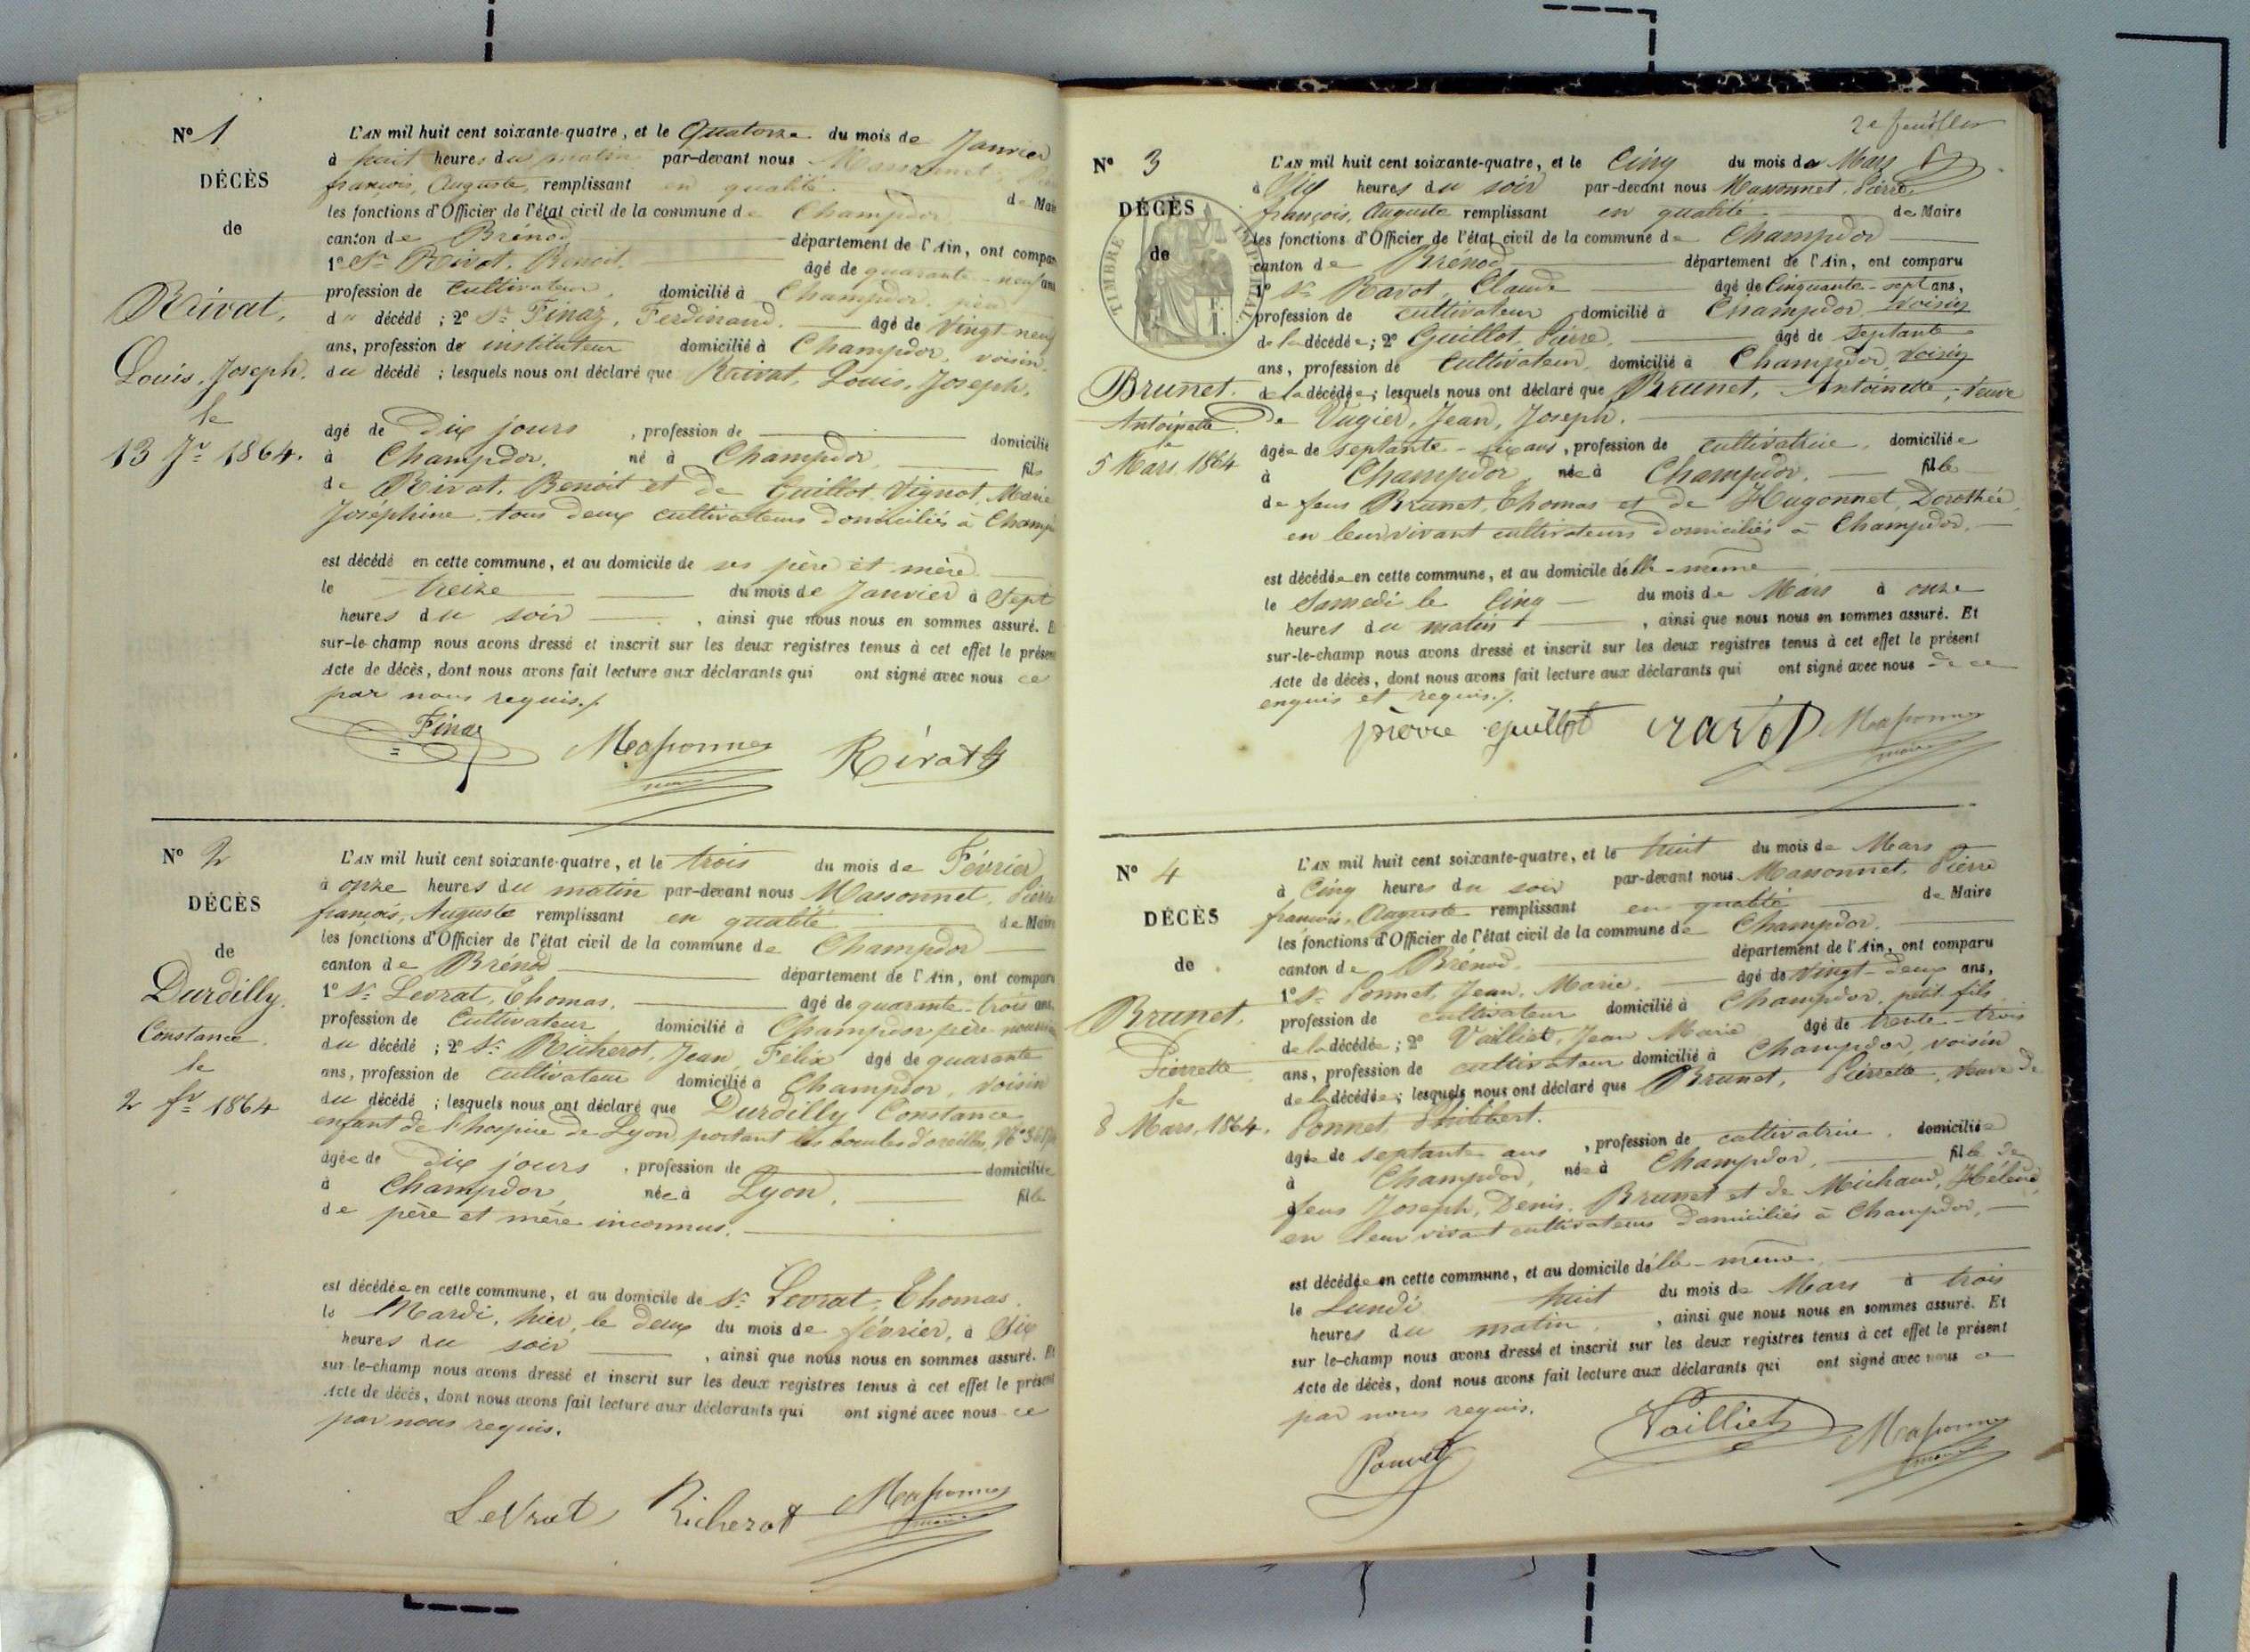 Nº 1
DÉCÈS
de
Rivat,
Louis, Joseph.
le
13 Jr 1864.
L'AN mil huit cent soixante-quatre, et le Quatorze du mois de Janvier
à huit heures du matin par-devant nous Massonnet,
françois, Auguste, remplissant en qualité de Mai
les fonctions d'Officier de l'état civil de la commune de Champdor
canton de Brénod département de l'Ain, ont compar
1º Sr Rivat, Benoit, âgé de quarante-neuf ans
profession de cultivateur, domicilié à Champdor, père
du décédé ; 2º Sr Finaz, Ferdinand, âgé de Vingt neuf
ans, profession de instituteur domicilié à Champdor, voisin
du décédé ; lesquels nous ont déclaré que Rivat, Louis, Joseph,
âgé de Dix jours , profession de domicilié
à Champdor, né à Champdor, fils
de Rivat, Benoit et de Guillot Vignot, Marie
Joséphine, tous deux cultivateurs domiciliés à Champd
est décédé en cette commune, et au domicile de ses père et mère
le treize du mois de Janvier à Sept
heures du soir , ainsi que nous nous en sommes assuré. E
sur-le-champ nous avons dressé et inscrit sur les deux registres tenus à cet effet le présen
Acte de décès, dont nous avons fait lecture aux déclarants qui ont signé avec nous ce
par nous requis./.
Finaz Massonnet Rivat
maire
Nº 2
DÉCÈS
de
Durdilly,
Constance.
le
2 fr 1864
L'AN mil huit cent soixante-quatre, et le trois du mois de Février
à onze heures du matin par-devant nous Massonnet, Pierre
françois, Auguste remplissant en qualité de Maire
les fonctions d'Officier de l'état civil de la commune de Champdor
canton de Brénod département de l'Ain, ont comparu
1º Sr Levrat, Thomas, âgé de quarante-trois ans,
profession de Cultivateur domicilié à Champdor père nourricier
du décédé ; 2º Sr Richerot, Jean Félix âgé de quarante
ans, profession de cultivateur domicilié à Champdor, voisin
du décédé ; lesquels nous ont déclaré que Durdilly Constance
enfant de l'hospice de Lyon, portant les boucles d'oreilles, Nº
âgée de dix jours , profession de domiciliée
à Champdor, née à Lyon, fille
de père et mère inconnus.
est décédée en cette commune, et au domicile de Sr Levrat, Thomas
le Mardi, hier, le deux du mois de février, à Six
heures du soir , ainsi que nous nous en sommes assuré. Et
sur-le-champ nous avons dressé et inscrit sur les deux registres tenus à cet effet le présent
Acte de décès, dont nous avons fait lecture aux déclarants qui ont signé avec nous ce
par nous requis.
LeVrat Richerot Massonnet
maire
2e feuillet
Nº 3
DÉCÈS
de
TIMBRE IMPÉRIAL
Brunet.
Antoinette
le
5 Mars 1864
L'AN mil huit cent soixante-quatre, et le Cinq du mois de Mars
à Six heures du soir par-devant nous Massonnet, Pierre,
françois, Auguste remplissant en qualité de Maire
les fonctions d'Officier de l'état civil de la commune de Champdor
canton de Brénod département de l'Ain, ont comparu
1º Sr Ravot, Claude âgé de Cinquante-sept ans,
profession de cultivateur domicilié à Champdor, Voisin
de la décédée ; 2º Guillot, Pierre, âgé de Septante
ans, profession de Cultivateur, domicilié à Champdor, Voisin
de la décédée ; lesquels nous ont déclaré que Brunet, Antoinette, Veuve
de Vugier, Jean, Joseph,
âgée de septante-six ans, profession de cultivatrice, domiciliée
à Champdor, née à Champdor, fille
de feus Brunet, Thomas et de Hugonnet, Dorothée,
en leur vivant cultivateurs domiciliés à Champdor,
est décédée en cette commune, et au domicile d'elle-même
le Samedi le Cinq du mois de Mars à onze
heures du matin , ainsi que nous nous en sommes assuré. Et
sur-le-champ nous avons dressé et inscrit sur les deux registres tenus à cet effet le présent
Acte de décès, dont nous avons fait lecture aux déclarants qui ont signé avec nous de ce
enquis et requis./.
pierre guillot ravot Massonnet
maire
Nº 4
DÉCÈS
de
Brunet,
Pierrette
le
8 Mars 1864.
L'AN mil huit cent soixante-quatre, et le huit du mois de Mars
à Cinq heures du soir par-devant nous Massonnet, Pierre
françois, Auguste remplissant en qualité de Maire
les fonctions d'Officier de l'état civil de la commune de Champdor.
canton de Brénod. département de l'Ain, ont comparu
1º Sr Ponnet, Jean, Marie, âgé de Vingt-deux ans,
profession de cultivateur domicilié à Champdor, petit fils
de la décédée ; 2º Vailliet, Jean Marie âgé de trente-trois
ans, profession de cultivateur domicilié à Champdor, voisin
de la décédée ; lesquels nous ont déclaré que Brunet, Pierrette, veuve de
Ponnet, Philibert.
âgée de septante ans , profession de cultivatrice, domiciliée
à Champdor, née à Champdor, fille de
feus Joseph, Denis, Brunet et de Michaud, Hélène
en leur vivant cultivateurs domiciliés à Champdor,
est décédée en cette commune, et au domicile d'elle-même
le Lundi huit du mois de Mars à trois
heures du matin , ainsi que nous nous en sommes assuré. Et
sur le-champ nous avons dressé et inscrit sur les deux registres tenus à cet effet le présent
Acte de décès, dont nous avons fait lecture aux déclarants qui ont signé avec nous ce
par nous requis.
Ponnet Vailliet Massonnet
maire